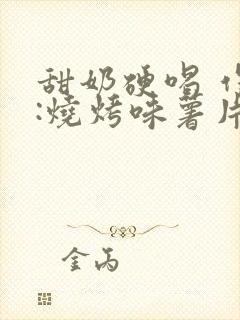 甜奶硬唱
:燒烤味薯片
金丙